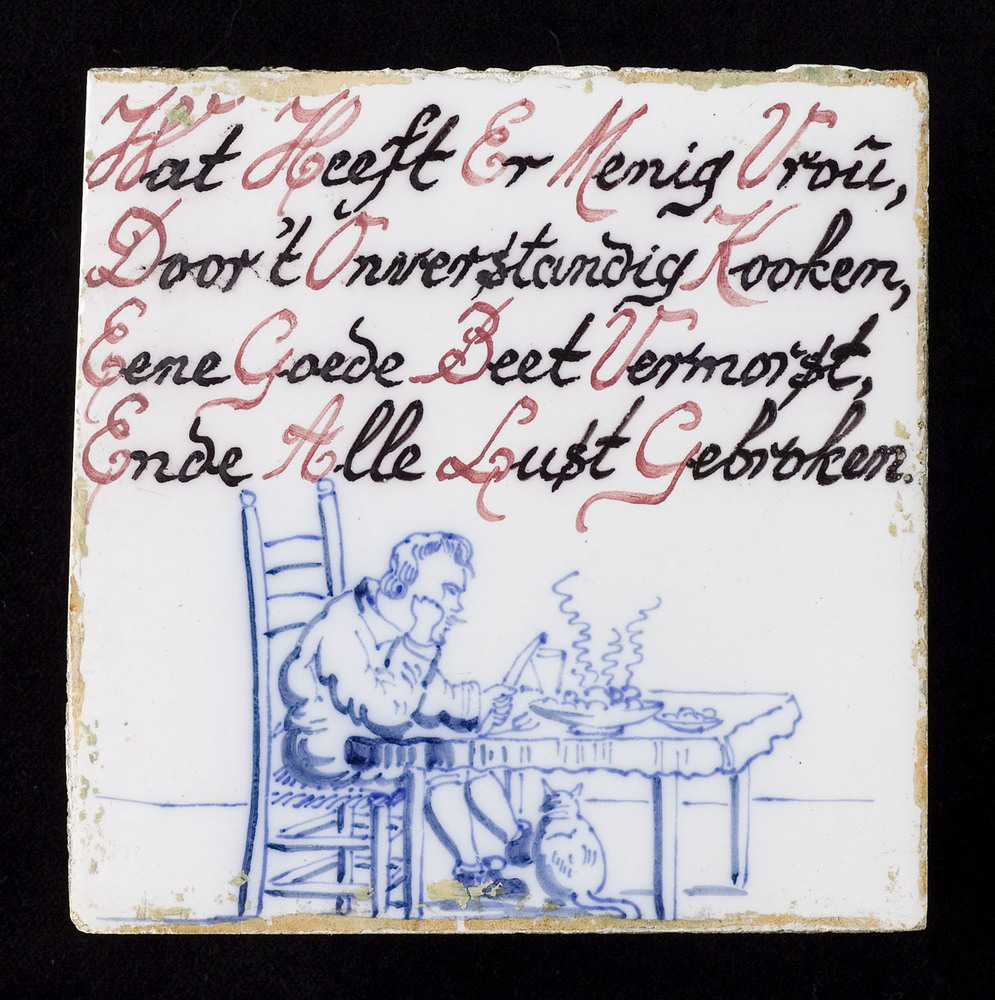 Wat Heeft Er Menig Vroû,
Door't Onverstandig Kooken,
Eene Goede Beet Vermorst,
Ende Alle Lust Gebroken.